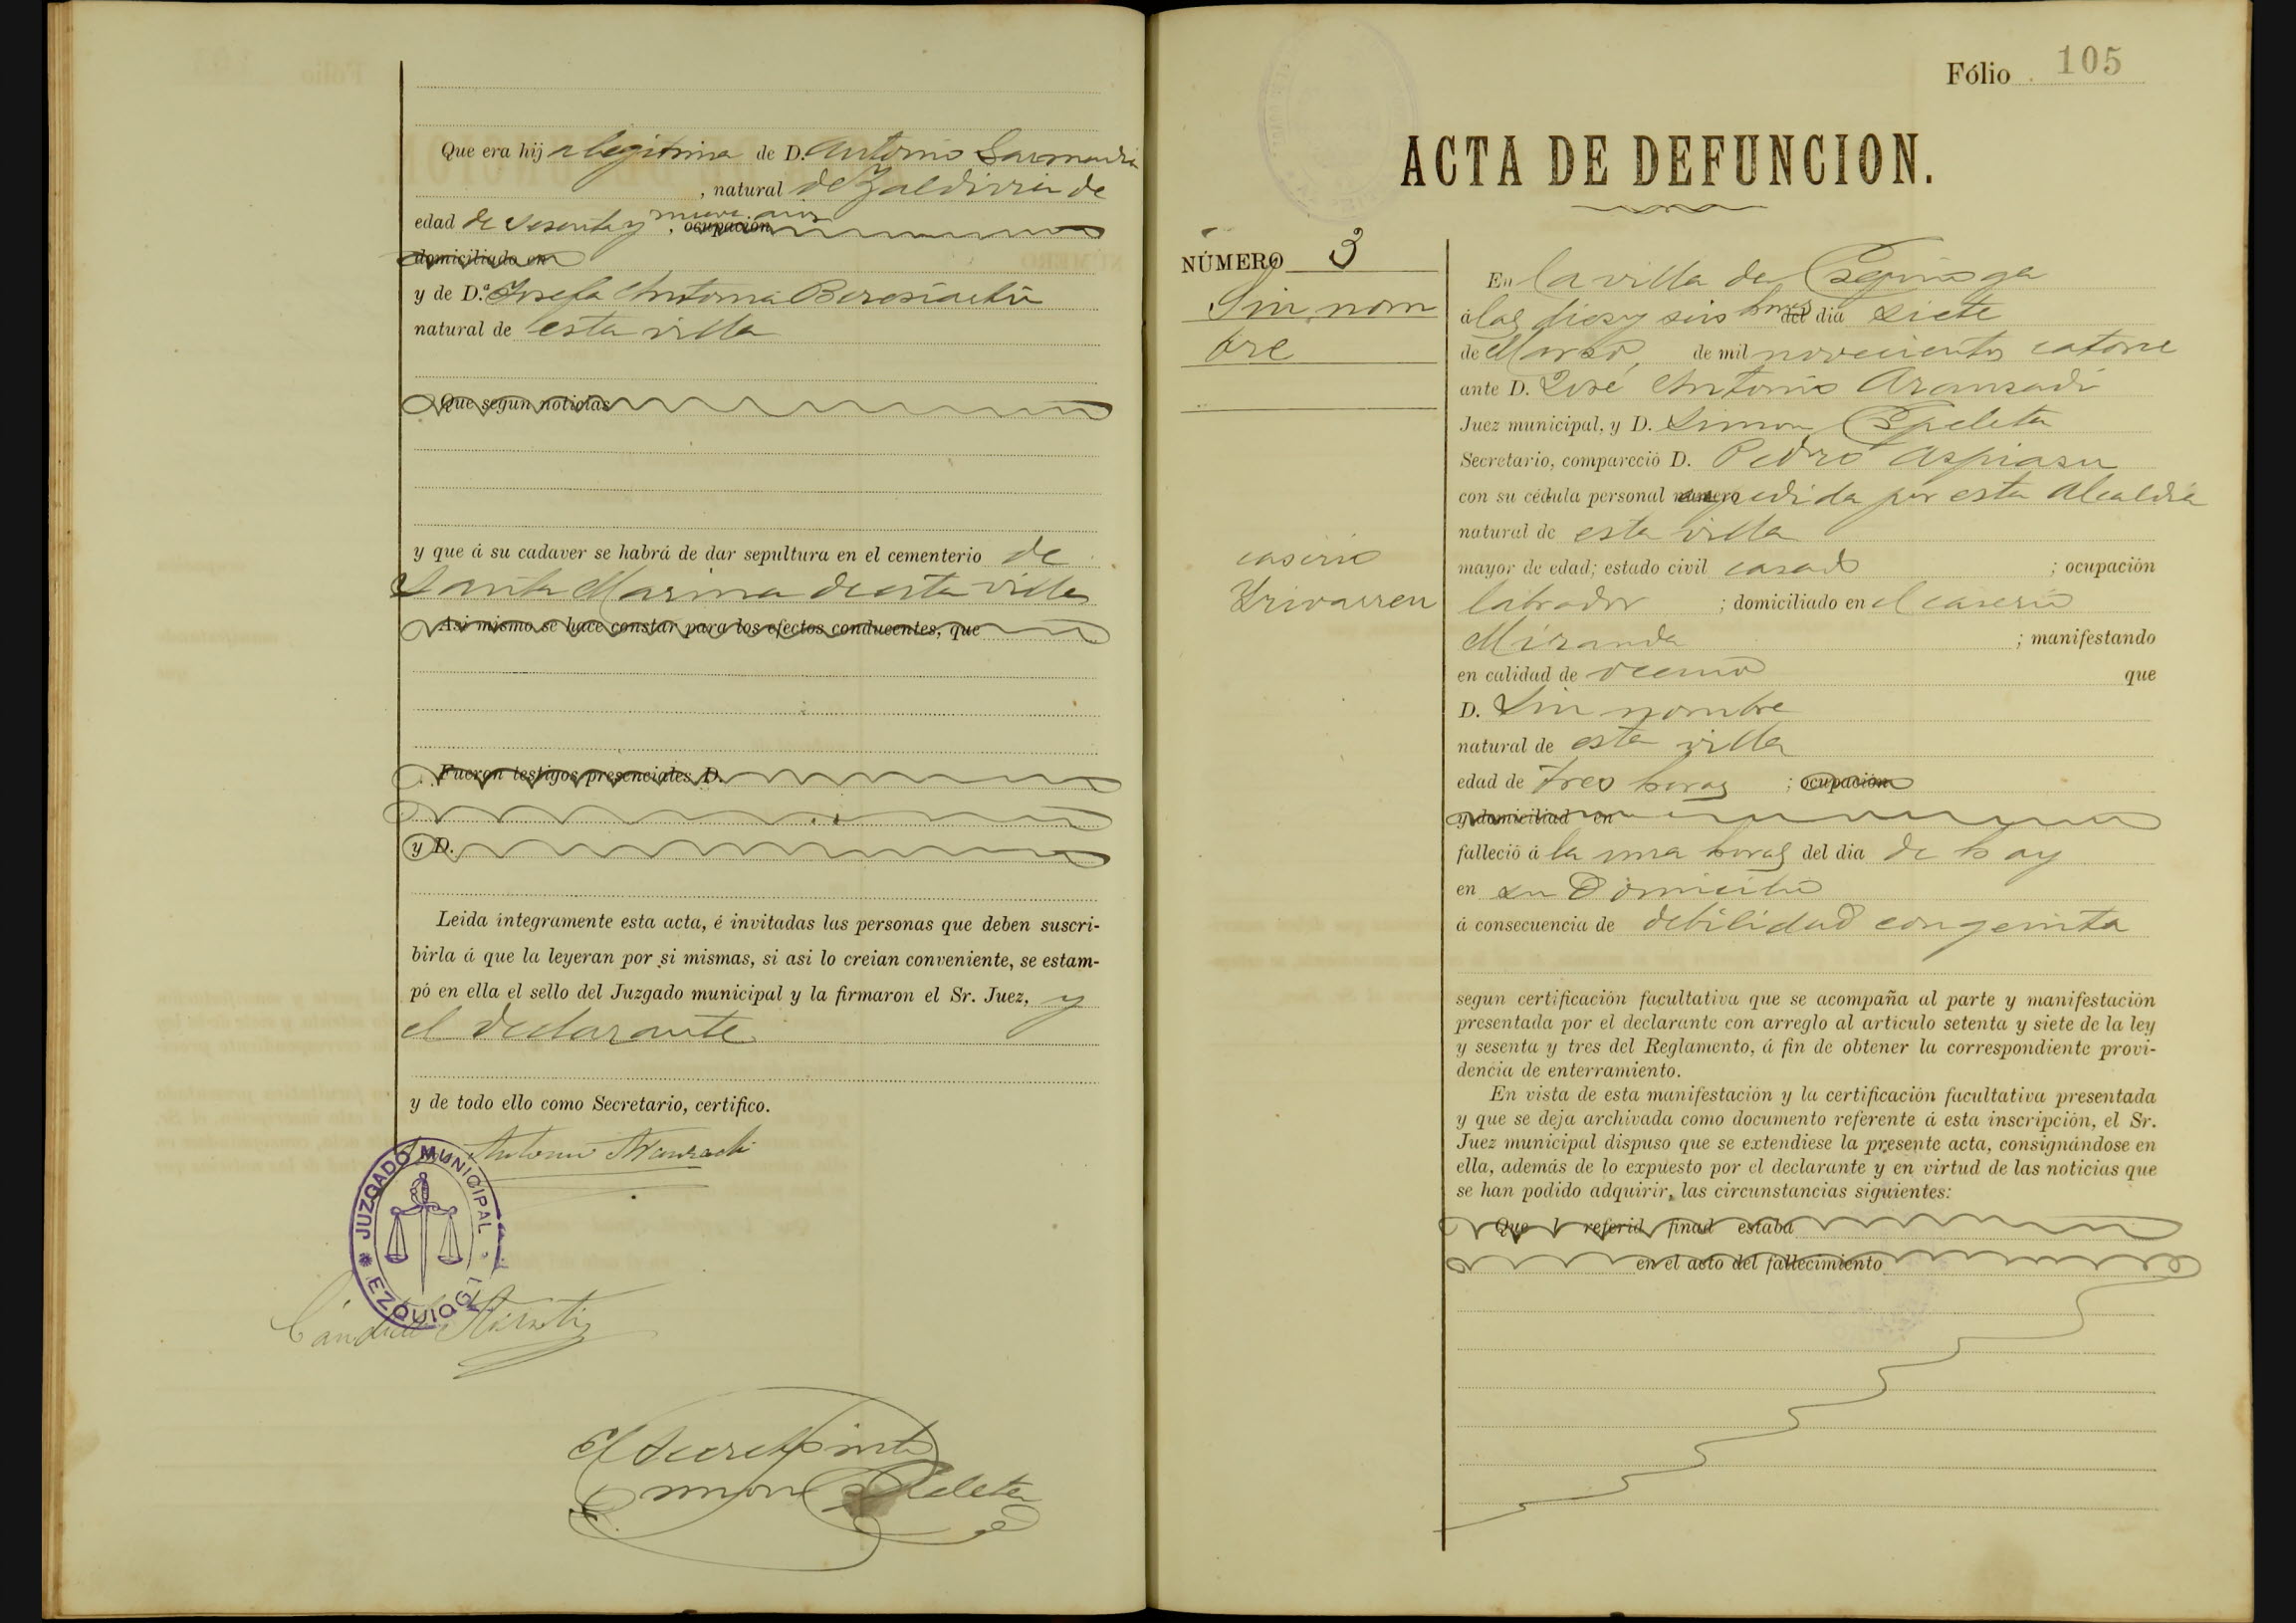 Que era hija legitima de D. Antonio
, natural de Zaldivia de
edad de sesenta y nueve años, ocupación
domiciliado en
y de D.ª Josefa Antonia
natural de esta villa
Que segun noticias
y que á su cadaver se habrá de dar sepultura en el cementerio de
Santa Marina de esta villa
Asi mismo se hace constar para los efectos conducentes, que
Fueron testigos presenciales D.
y D.
Leida íntegramente esta acta, é invitadas las personas que deben suscri-
birla á que la leyeran por si mismas, si asi lo creian conveniente, se estam-
pó en ella el sello del Juzgado municipal y la firmaron el Sr. Juez, y
el declarante
y de todo ello como Secretario, certifico.
Antonio Aranzadi
JUZGADO MUNICIPAL
EZQUIOGA
Cándido
El Secretario
Simon Ezpeleta
Fólio 105
ACTA DE DEFUNCION.
NÚMERO 3
Sin nom
bre
caserio
Yrivarren
En la villa de Ezquioga
á las diez y seis horas del dia siete
de Marzo, de mil novecientos catorce
ante D. José Antonio Aranzadi
Juez municipal, y D. Simon Ezpeleta
Secretario, compareció D. Pedro Aspiazu
con su cédula personal numero expedida por esta Alcaldia
natural de esta villa
mayor de edad; estado civil casado ; ocupación
labrador ; domiciliado en el caserio
Miranda ; manifestando
en calidad de vecino que
D. Sin nombre
natural de esta villa
edad de tres horas ; ocupación
y domiciliad en
falleció á la una horas del dia de hoy
en su domicilio
á consecuencia de debilidad congenita
segun certificación facultativa que se acompaña al parte y manifestación
presentada por el declarante con arreglo al artículo setenta y siete de la ley
y sesenta y tres del Reglamento, á fin de obtener la correspondiente provi-
dencia de enterramiento.
En vista de esta manifestación y la certificación facultativa presentada
y que se deja archivada como documento referente á esta inscripción, el Sr.
Juez municipal dispuso que se extendiese la presente acta, consignándose en
ella, además de lo expuesto por el declarante y en virtud de las noticias que
se han podido adquirir, las circunstancias siguientes:
Que l referid finad estaba
en el acto del fallecimiento